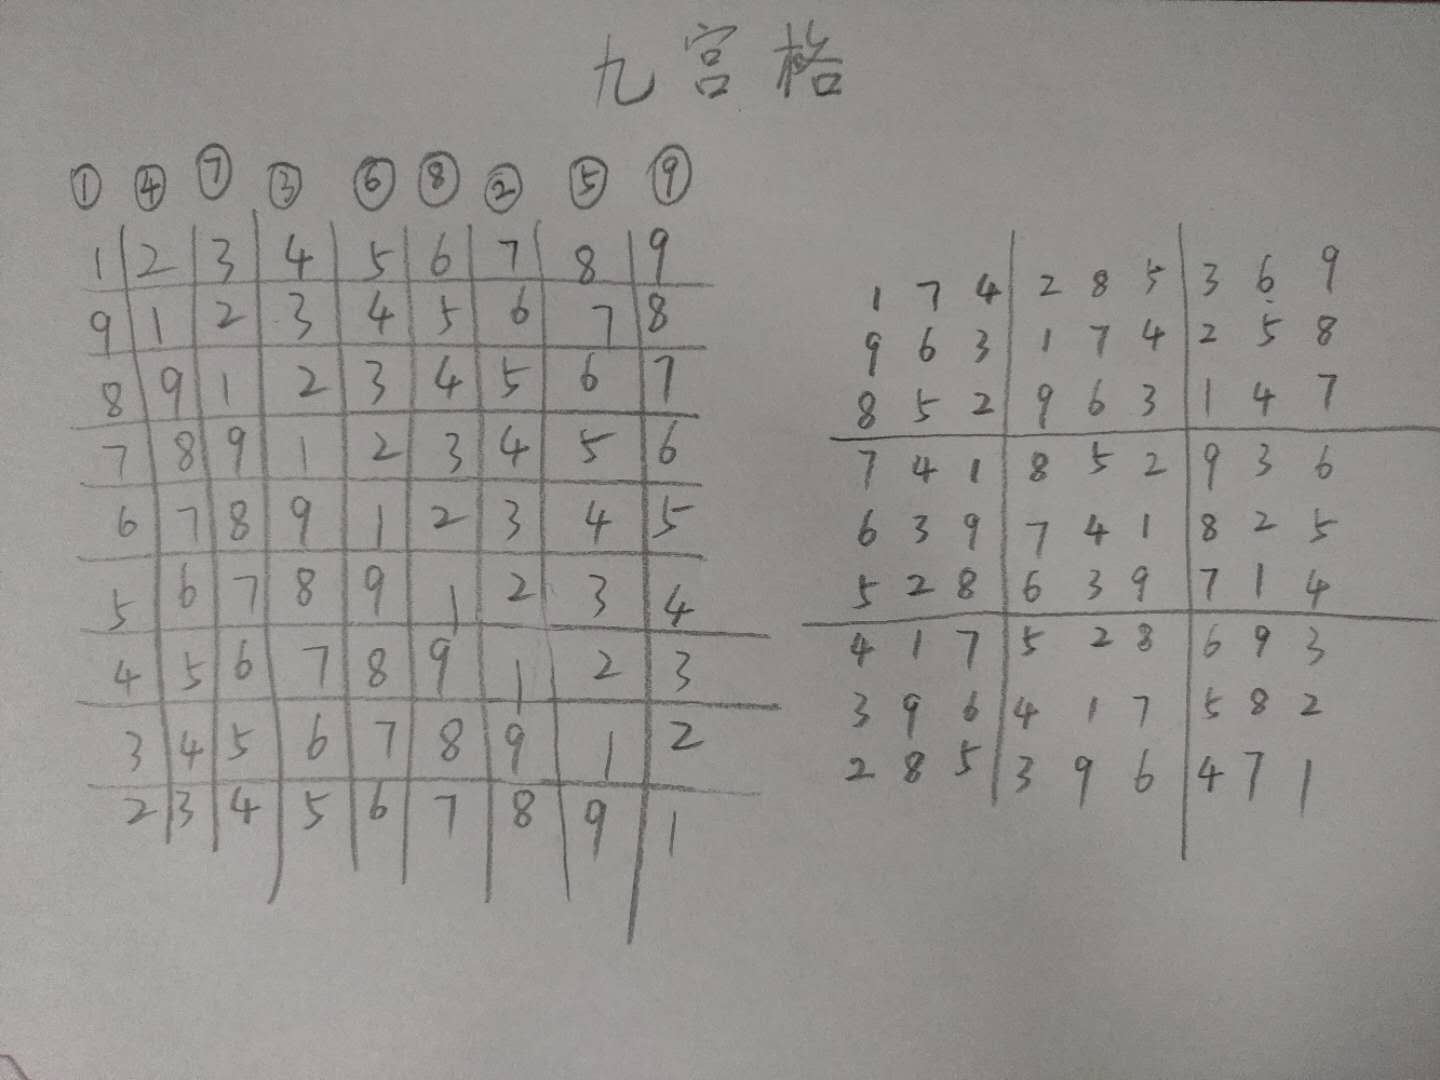 九宫格
① ④ ⑦ ③ ⑥ ⑧ ② ⑤ ⑨
1 2 3 4 5 6 7 8 9
9 1 2 3 4 5 6 7 8
8 9 1 2 3 4 5 6 7
7 8 9 1 2 3 4 5 6
6 7 8 9 1 2 3 4 5
5 6 7 8 9 1 2 3 4
4 5 6 7 8 9 1 2 3
3 4 5 6 7 8 9 1 2
2 3 4 5 6 7 8 9 1
1 7 4 2 8 5 3 6 9
9 6 3 1 7 4 2 5 8
8 5 2 9 6 3 1 4 7
7 4 1 8 5 2 9 3 6
6 3 9 7 4 1 8 2 5
5 2 8 6 3 9 7 1 4
4 1 7 5 2 8 6 9 3
3 9 6 4 1 7 5 8 2
2 8 5 3 9 6 4 7 1